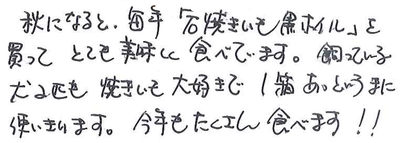 秋になると、毎年「石焼きいも黒ホイル」を
買って とても美味しく食べてます。飼っている
犬2匹も 焼きいも大好きで 1箱あっというまに
使いきります。今年もたくさん食べます!!